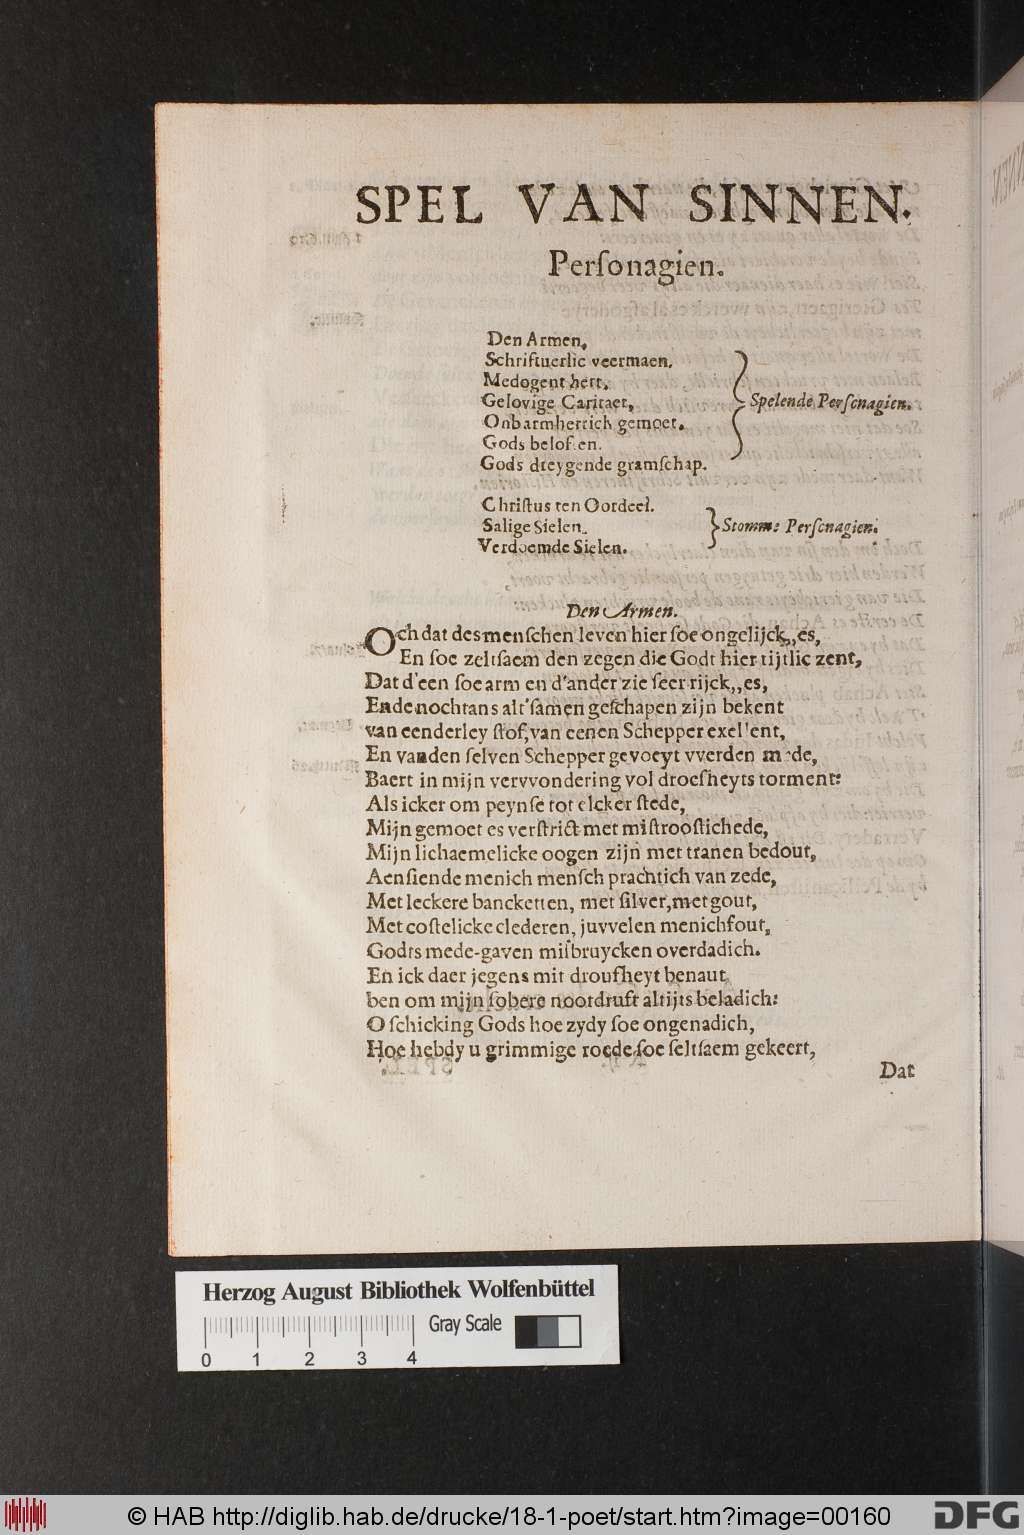 SPEL VAN SINNEN.
Perſonagien.
Den Armen,
Schriftuerlic veermaen,
Medogent hert,
Gelovige Caritaet,
Onbarmhertich gemoet.
Gods beloften.
Gods dreygende gramſchap.
Spelende Perſonagien.
Chriſtus ten Oordeel.
Salige Sielen.
Verdoemde Sielen.
Stomme Perſonagien.
Den Armen.
Och dat des menſchen leven hier ſoe ongelijck,,es,
En ſoe zeltſaem den zegen die Godt hier tijtlic zent,
Dat d'een ſoe arm en d'ander zie ſeer rijck,,es,
Ende nochtans alt'ſamen geſchapen zijn bekent
van eenderley ſtof, van eenen Schepper exellent,
En vanden ſelven Schepper gevoeyt vverden mede,
Baert in mijn vervvondering vol droefheyts torment:
Als icker om peynſe tot elcker ſtede,
Mijn gemoet es verſtrict met miſtrooſtichede,
Mijn lichaemelicke oogen zijn met tranen bedout,
Aenſiende menich menſch prachtich van zede,
Met leckere bancketten, met ſilver, met gout,
Met coſtelicke clederen, juvvelen menichfout,
Godts mede-gaven miſbruycken overdadich.
En ick daer jegens mit droufheyt benaut
ben om mijn ſobere nootdruft altijts beladich:
O ſchicking Gods hoe zydy ſoe ongenadich,
Hoe hebdy u grimmige roede ſoe ſeltſaem gekeert,
Dat
Herzog August Bibliothek Wolfenbüttel
Gray Scale
0 1 2 3 4
© HAB http://diglib.hab.de/drucke/18-1-poet/start.htm?image=00160
DFG